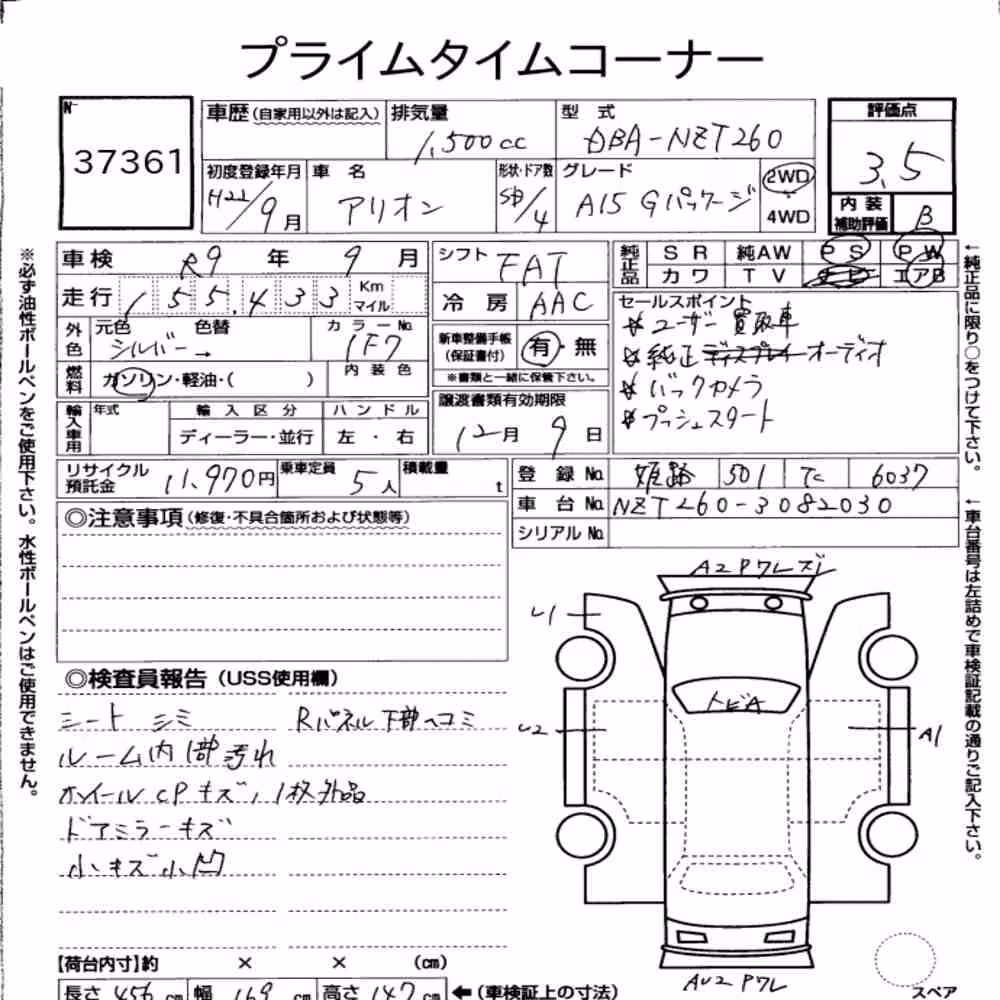 プライムタイムコーナー
No.
37361
車歴 (自家用以外は記入)
排気量
1,500cc
型 式
DBA-NZT260
評価点
3.5
初度登録年月
H21/9月
車 名
アリオン
形状・ドア数
SD/4
グレード
A15 Gパッケージ
2WD
4WD
内 装
補助評価
B
車検 R9 年 9 月
シフト FAT
純正品
S R 純AW P S P W
カワ T V ナビ エアB
走行 155,433 Km マイル
冷 房 AAC
セールスポイント
* ユーザー買取車
* 純正ディスプレイオーディオ
* バックカメラ
* プッシュスタート
外色
元色 色替
シルバー →
カラーNo.
1F7
新車整備手帳
(保証書付)
有・無
※書類と一緒に保管下さい。
燃料
ガソリン・軽油・( )
内 装 色
譲渡書類有効期限
12月 9日
輸入車用
年式
輸 入 区 分
ハ ン ド ル
ディーラー・並行
左 ・ 右
リサイクル
預託金
11,970円
乗車定員
5人
積載量
t
登 録 No. 姫路 501 て 6037
車 台 No. NZT260-3082030
シリアル No.
◎注意事項(修復・不具合箇所および状態等)
◎検査員報告(USS使用欄)
シート シミ
Rパネル下部ヘコミ
ルーム内 汚れ
ホイールCPキズ, 1枚外品
ドアミラーキズ
小キズ小凹
A2 Pワレズレ
U1
トビA
U2
A1
AU2 Pワレ
【荷台内寸】約 × × (cm)
長さ 456 cm 幅 169 cm 高さ 147 cm ←(車検証上の寸法)
スペア
※必ず油性ボールペンをご使用下さい。水性ボールペンはご使用できません。
←純正品に限り○をつけて下さい。
←車台番号は左詰めで車検証記載の通りご記入下さい。